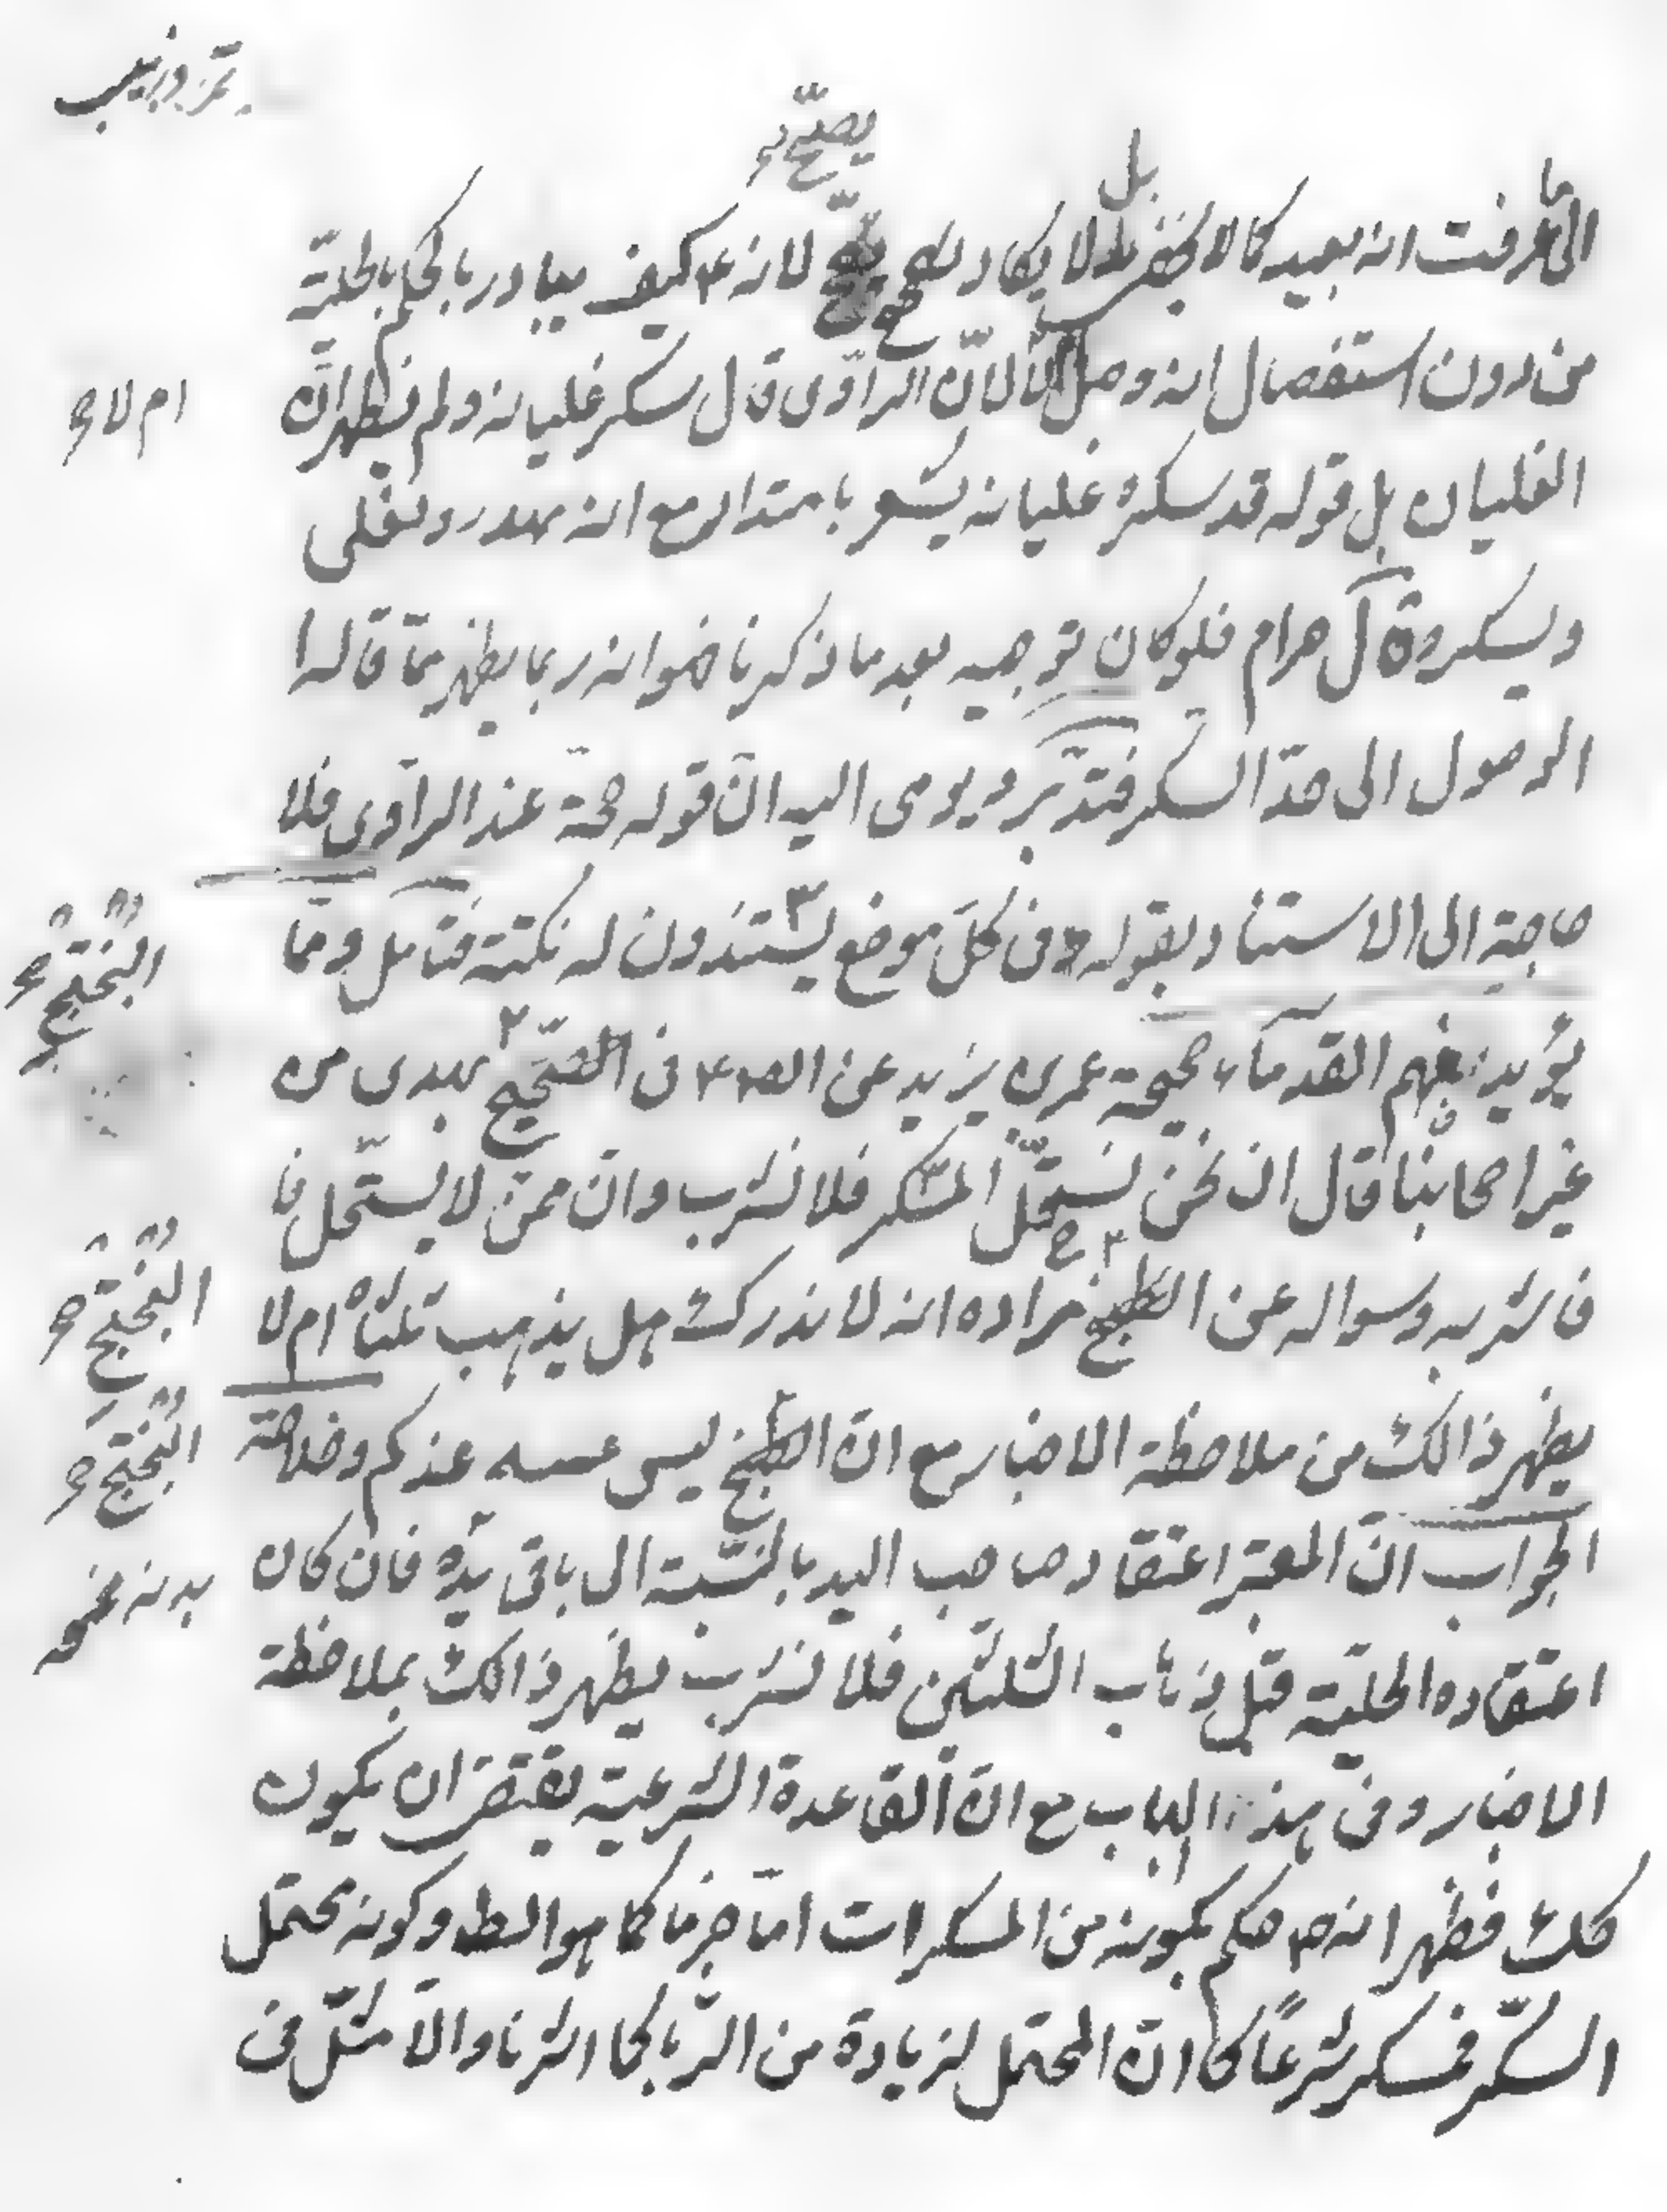 تمر وزبيب
يصحّ
بل
الى ما عرفت انه بعيد كما لا يخفى بل لا يكاد يصح لانه ع كيف يبادر بالحكم بالحلية
من دون استفصال انه وصل لان الراوى قال سكر غليانه ولم يظهر ان
ام لا
الغليان بل قوله قد سكر غليانه يشعر بامتداد مع انه يهدر ويغلى
ويسكر وقال حرام فلو كان توجيه بعد ما ذكرنا فهو انه ربما يظهر مما قاله ا
الوصول الى حدّ السكر فتدبّر ويومى اليه ان قوله حجة عند الراوى فلا
حاجة الى الاستناد بقوله وفى كلّ موضع يستندون له نكتة فتأمل وممّا
البختج
يؤيد فهم القدماء صحيحة عمر بن يزيد عن الص ع فى يهدى من
غير اصحابنا قال ان نحن نستحلّ المسكر فلا نشرب وان ممن لا يستحل فا
فاشربه وسواله عن الطبخ مراده انه لا ندرك هل يذهب ثلثاه ام لا
البختج
يظهر ذالك من ملاحظة الاخبار مع ان الطبخ ليس عندكم وخلاصة
البختج
الجواب ان المعتبر اعتقاد صاحب اليد بالنسبة الى باقى يده فان كان
اعتقاده الحلية قبل ذهاب الثلثين فلا نشرب يظهر ذالك بملاحظة
الاخبار وفى هذا الباب مع ان القاعدة الشرعية يقتضى ان يكون
كك فظهر انه ص حكم بكونه من المسكرات اما جزما كما هو الظ وكونه محتمل
السكر فمسكر شرعًا كما ان المحتمل لزيادة من الربا كما اشرنا والا مثل فى